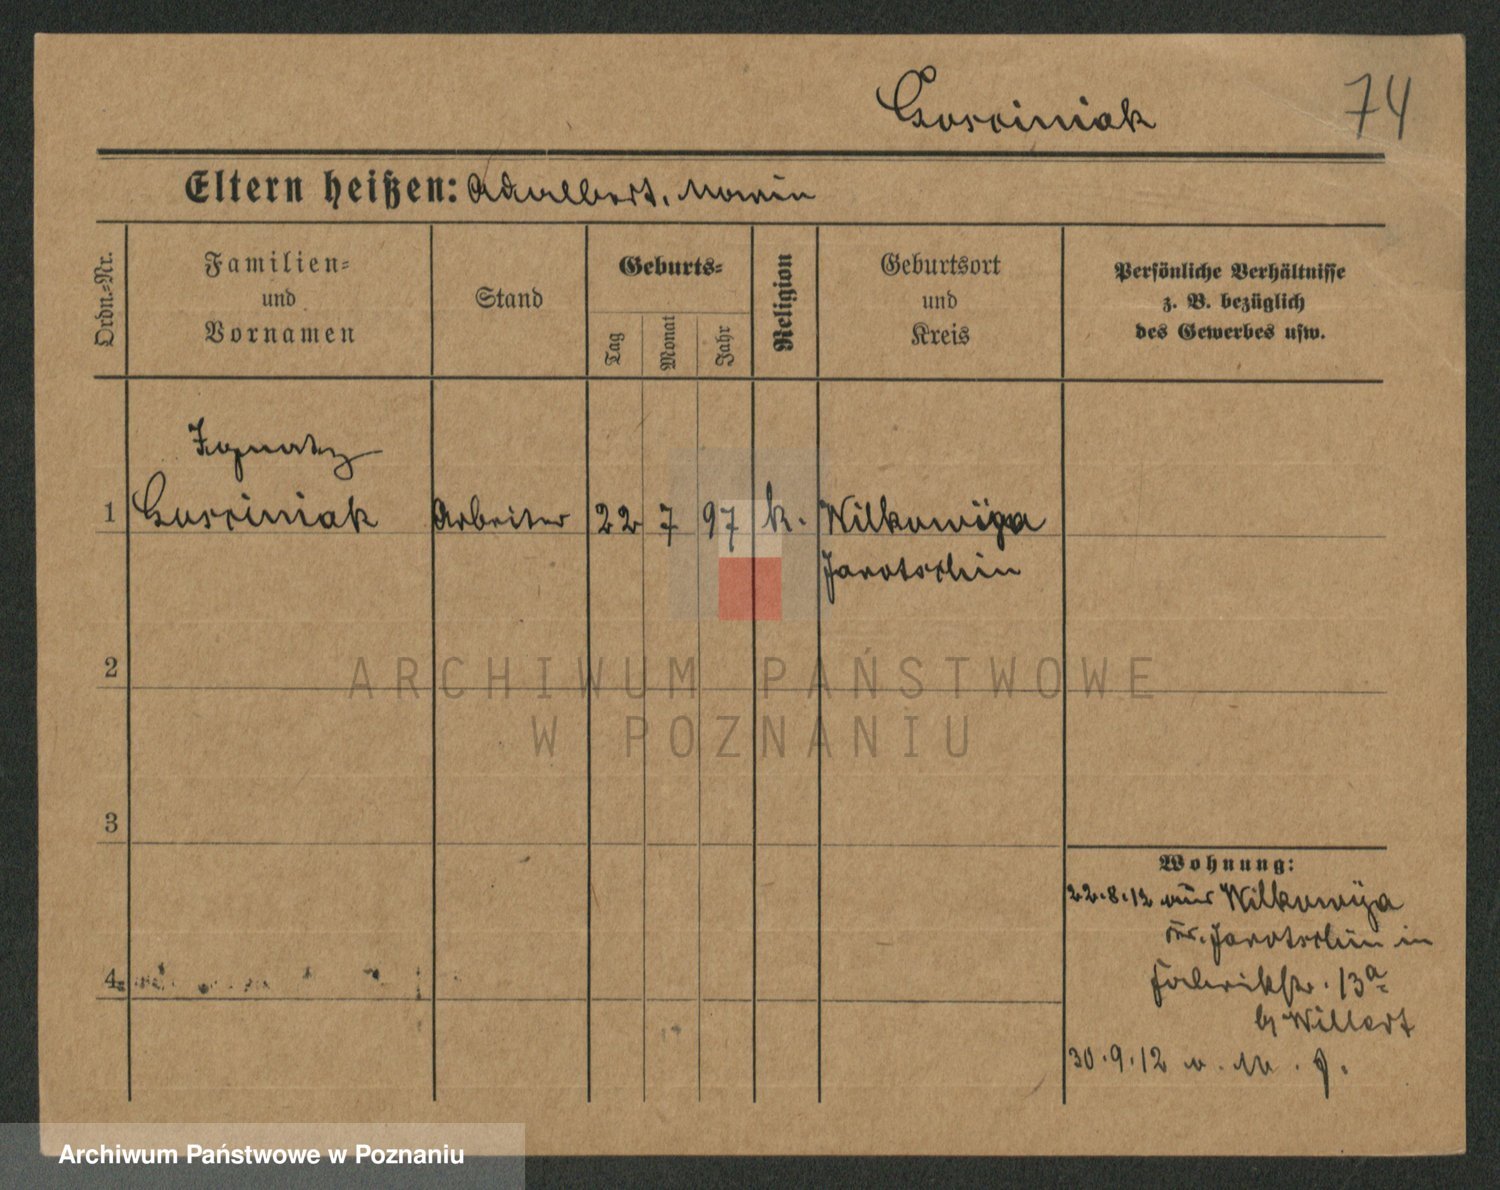 Gosciniak
74
Eltern heißen: Adalbert, Marcin
Ordn.-Nr.
Familien-
und
Vornamen
Stand
Geburts-
Tag
Monat
Jahr
Religion
Geburtsort
und
Kreis
Persönliche Verhältnisse
z. B. bezüglich
des Gewerbes usw.
Ignatz
1 Gosciniak Arbeiter 22 7 97 k. Wilkowÿa
Jarotschin
2
ARCHIWUM PAŃSTWOWE
W POZNANIU
3
Wohnung:
22.8.12 aus Wilkowÿa
Jarotschin in
Fabrikstr. 13a
by Willert
4
30.9.12
Archiwum Państwowe w Poznaniu